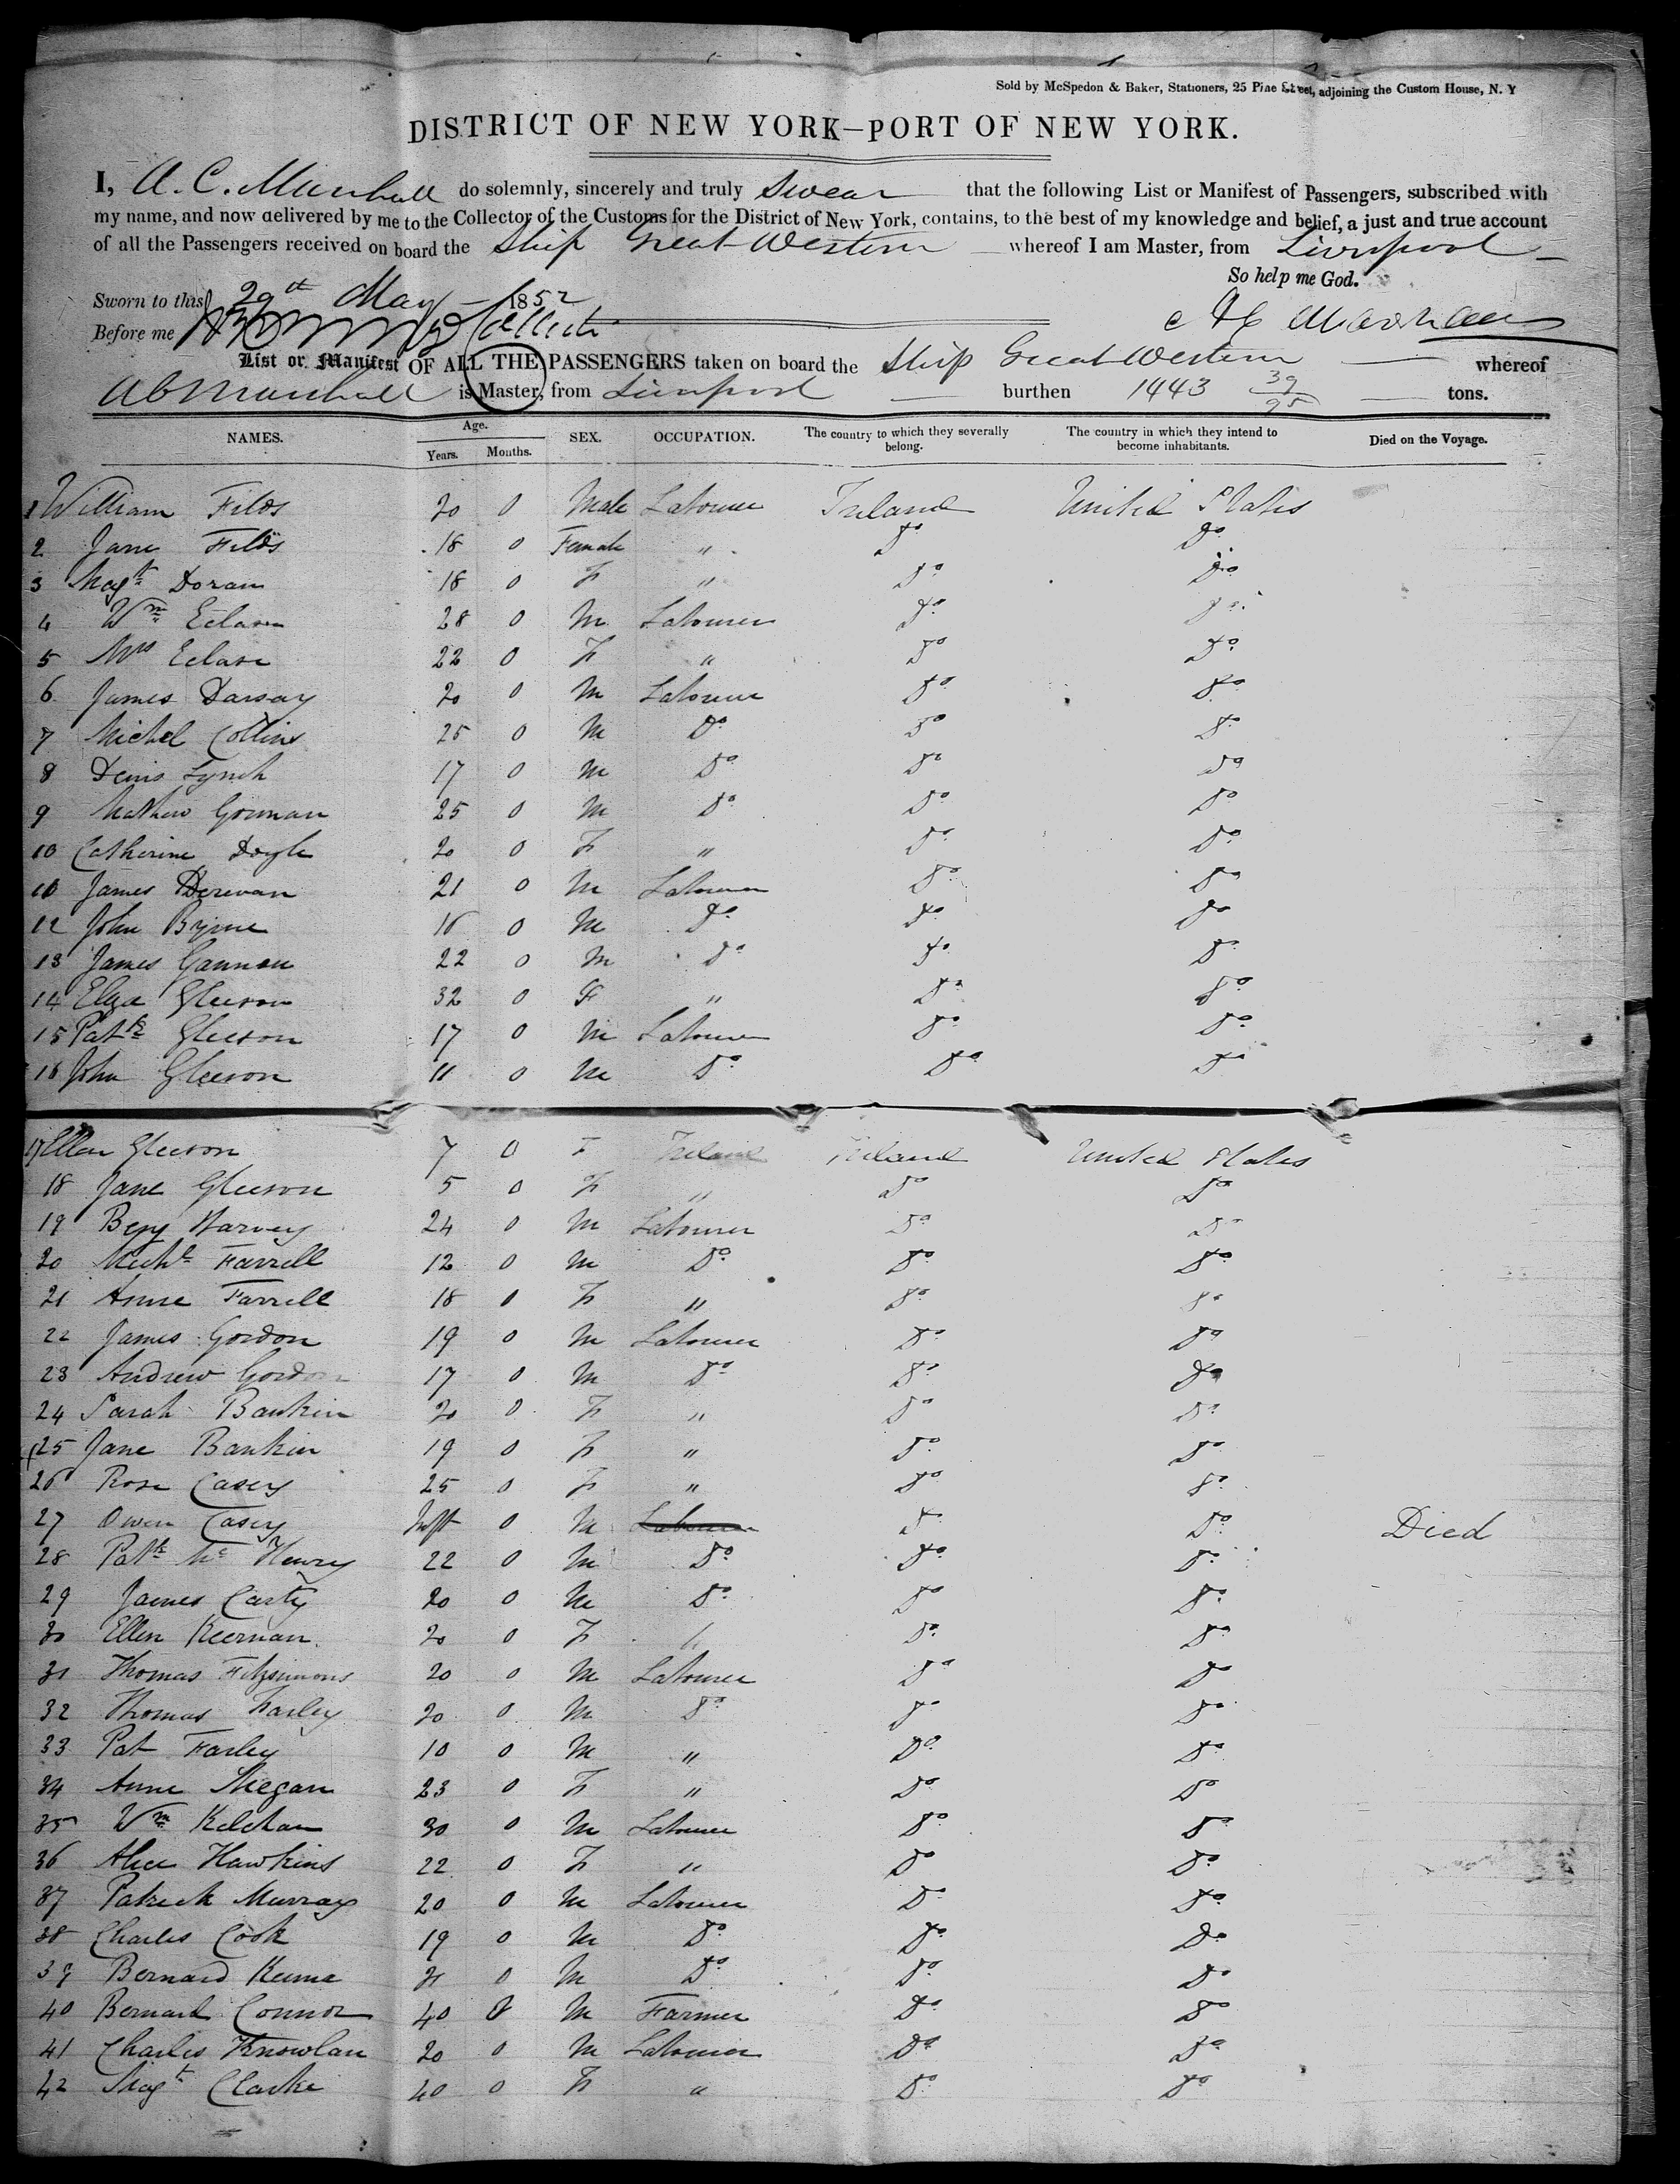 Sold by McSpedon & Baker, Stationers, 25 Pine Street, adjoining the Custom House, N. Y
DISTRICT OF NEW YORK—PORT OF NEW YORK.
I, A. C. Marshall do solemnly, sincerely and truly Swear that the following List or Manifest of Passengers, subscribed with
my name, and now delivered by me to the Collector of the Customs for the District of New York, contains, to the best of my knowledge and belief, a just and true account
of all the Passengers received on board the Ship Great Western whereof I am Master, from Liverpool
So help me God.
Sworn to this 29th May 1852
Before me A C Marshall
List or Manifest OF ALL THE PASSENGERS taken on board the Ship Great Western whereof
A C Marshall is Master, from Liverpool burthen 1443 39/95 tons.
NAMES. Age. Years. Months. SEX. OCCUPATION. The country to which they severally belong. The country in which they intend to become inhabitants. Died on the Voyage.
1 William Filds 20 0 Male Labourer Ireland United States
2 Jane Filds 18 0 Female " Do Do
3 Magt Doran 18 0 F " Do Do
4 Wm 28 0 M Labourer Do Do
5 Mrs 22 0 F " Do Do
6 James Darsay 20 0 M Labourer Do Do
7 Michel Collins 25 0 M Do Do Do
8 Denis Lynch 17 0 M Do Do Do
9 Mathew Gorman 25 0 M Do Do Do
10 Catherine Doyle 20 0 F " Do Do
10 James Derevan 21 0 M Labourer Do Do
12 John Byrne 16 0 M Do Do Do
13 James Gannon 22 0 M Do Do Do
14 Eliza Gleeson 32 0 F " Do Do
15 Patk Gleeson 17 0 M Labourer Do Do
16 John Gleeson 11 0 M Do Do Do
17 Ellen Gleeson 7 0 F Ireland Ireland United States
18 Jane Gleeson 5 0 F " Do Do
19 Benj Harvey 24 0 M Labourer Do Do
20 Michl Farrell 12 0 M Do Do Do
21 Anne Farrell 18 0 F " Do Do
22 James Gordon 19 0 M Labourer Do Do
23 Andrew Gordon 17 0 M Do Do Do
24 Sarah Bankin 20 0 F " Do Do
25 Jane Bankin 19 0 F " Do Do
26 Rose Casey 25 0 F " Do Do
27 Owen Casey Inft 0 M Labourer Do Do Died
28 Patk Mc Henry 22 0 M Do Do Do
29 James Carty 20 0 M Do Do Do
30 Ellen Keernan 20 0 F " Do Do
31 Thomas Fitzsimons 20 0 M Labourer Do Do
32 Thomas Farley 20 0 M Do Do Do
33 Pat Farley 10 0 M " Do Do
34 Anne Megan 23 0 F " Do Do
35 Wm Kelcham 30 0 M Labourer Do Do
36 Alice Hawkins 22 0 F " Do Do
37 Patrick Murray 20 0 M Labourer Do Do
38 Charles Cook 19 0 M Do Do Do
39 Bernard Keune 21 0 M Do Do Do
40 Bernard Connor 40 0 M Farmer Do Do
41 Charles Knowlan 20 0 M Labourer Do Do
42 Magt Clarke 40 0 F " Do Do